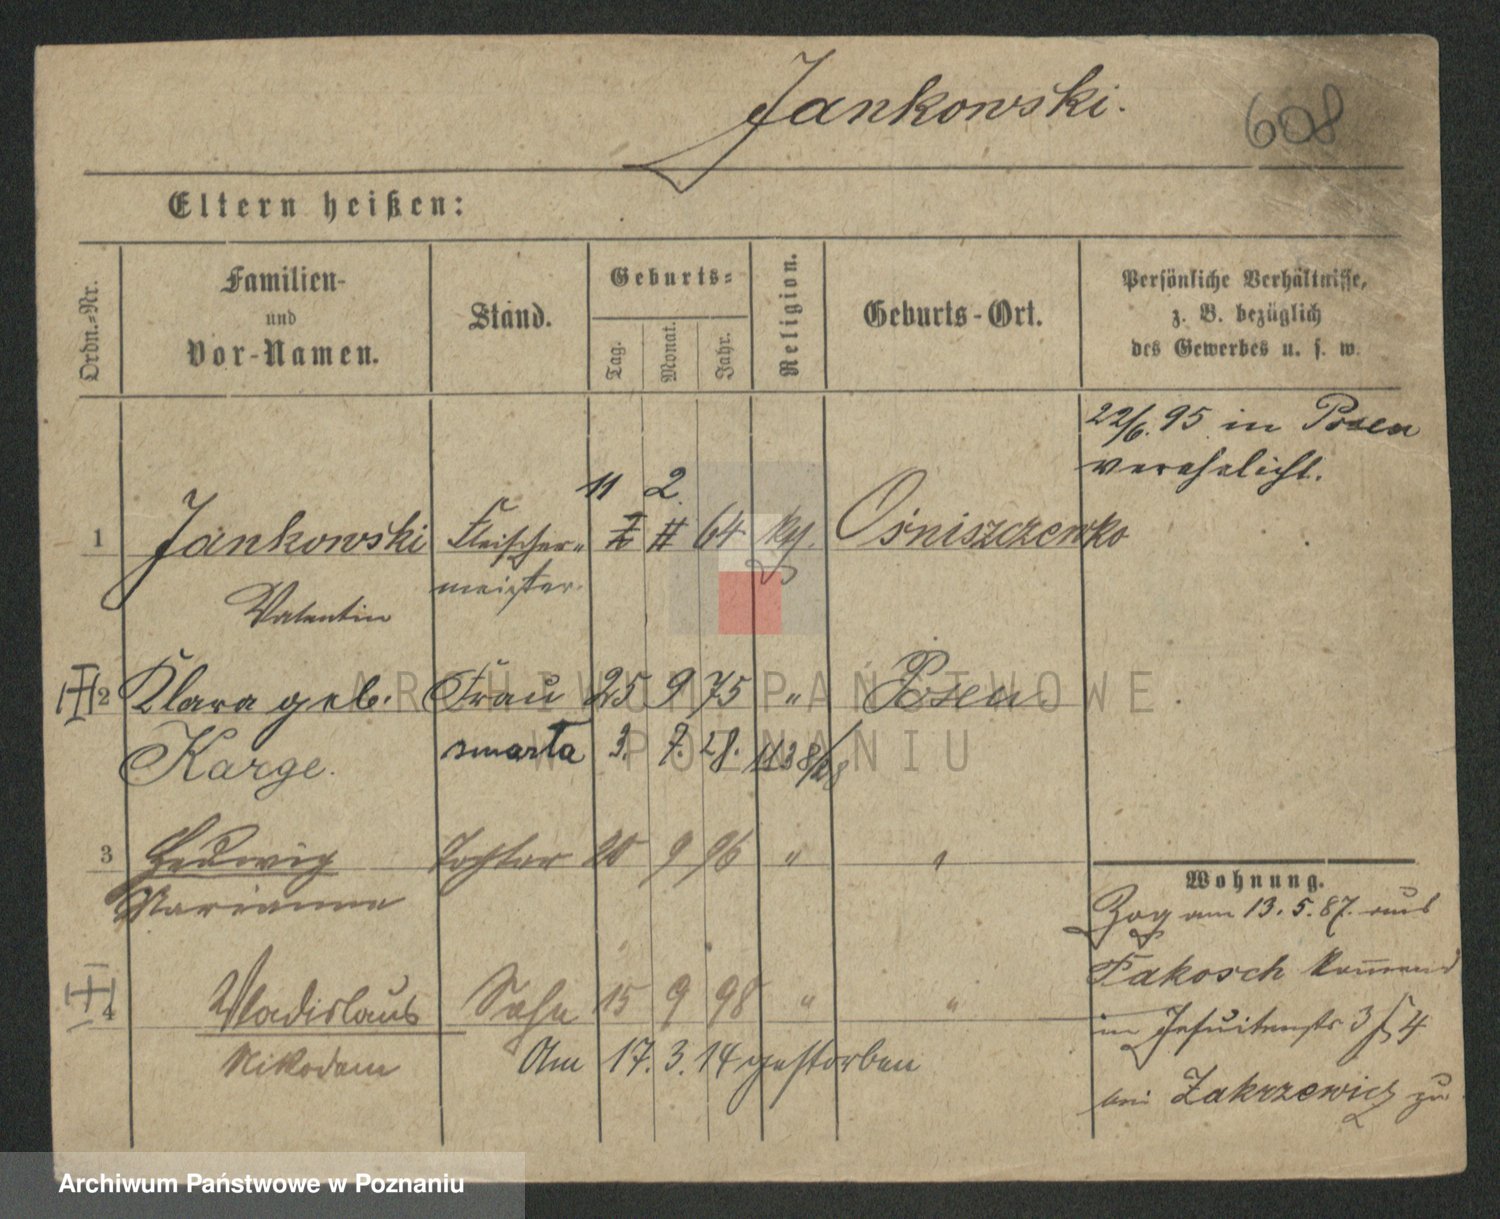 Jankowski.
608
Eltern heißen:
Ordn.-Nr.
Familien-
und
Vor-Namen.
Stand.
Geburts-
Tag.
Monat.
Jahr.
Religion.
Geburts-Ort.
Persönliche Verhältnisse,
z. B. bezüglich
des Gewerbes u. s. w.
22/6. 95 in Posen
verehelicht.
11 2.
1 Jankowski Fleischer- 64 Ośniszczewko
Valentin meister.
2 Klara geb. Frau 25 9 75 " Posen
Karge. zmarła 3. 7. 28. 1138/28
3 Hedwig Tochter 20 9 96 " "
Marianna
4 Wladislaus Sohn 15 9 98 " "
Nikodem Am 17. 3. 14 gestorben
Wohnung.
Zog am 13. 5. 87. aus
Pakosch kommend
in Jesuitenstr 3/4
bei Zakrzewicz zu
ARCHIWUM PAŃSTWOWE
W POZNANIU
Archiwum Państwowe w Poznaniu